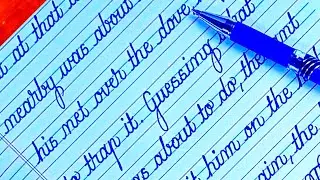 at that
nearby was about
his net over the dove
to trap it. Guessing that
was about to do, the ant
it him on the
ain, the